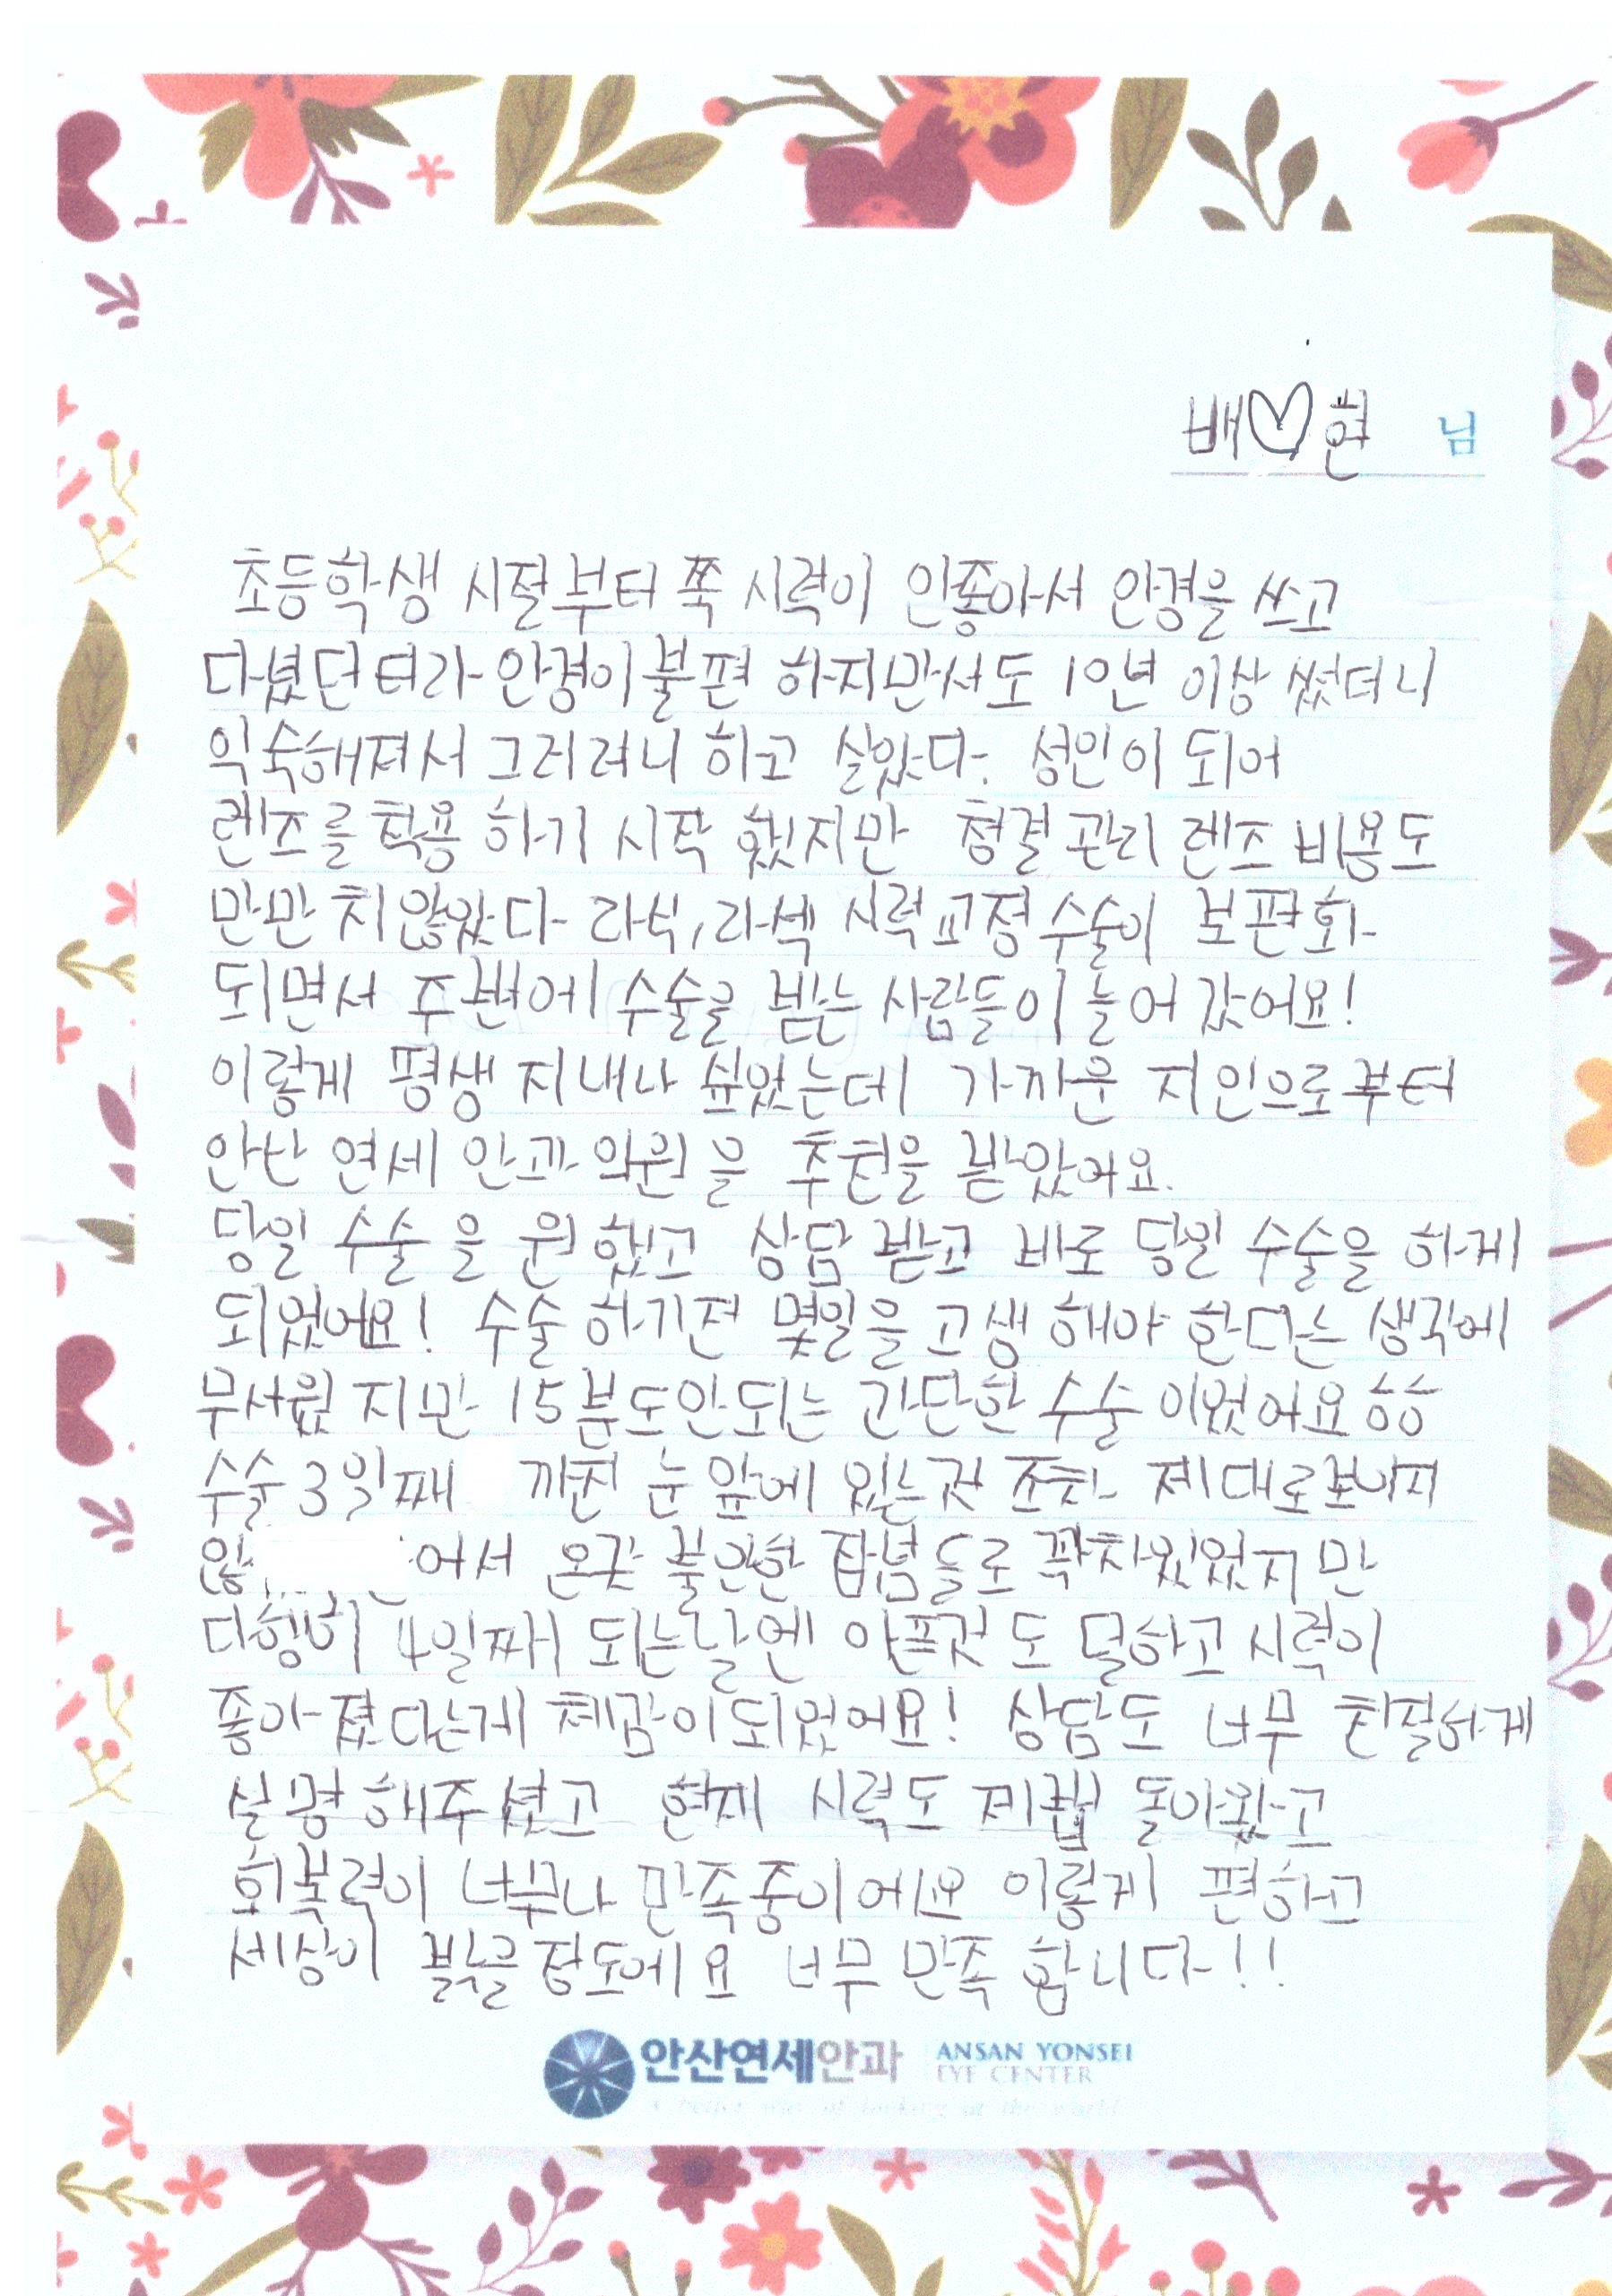 배♡현 님
초등학생 시절부터 쭉 시력이 안좋아서 안경을 쓰고
다녔던터라 안경이 불편 하지만서도 10년 이상 썼더니
익숙해져서 그러려니 하고 살았다. 성인이 되어
렌즈를 착용 하기 시작 했지만 청결 관리 렌즈 비용도
만만치않았다 라식, 라섹 시력교정수술이 보편화
되면서 주변에 수술을 받는 사람들이 늘어 갔어요!
이렇게 평생 지내나 싶었는데 가까운 지인으로부터
안산 연세 안과의원을 추천을 받았어요.
당일 수술을 원했고 상담 받고 바로 당일 수술을 하게
되었어요! 수술 하기전 몇일을 고생 해야 한다는 생각에
무서웠지만 15분도안되는 간단한 수술 이었어요ㅎㅎ
수술 3일째 까진 눈 앞에 있는것 조차 제대로보이지
않 어서 온갖 불안한 잡념들로 꽉차있었지만
다행히 4일째 되는날엔 아픈것도 덜하고 시력이
좋아졌다는게 체감이되었어요! 상담도 너무 친절하게
설명 해주셨고 현재 시력도 제법 돌아왔고
회복력이 너무나 만족중이에요 이렇게 편하고
세상이 밝을정도에요 너무 만족 합니다!!
안산연세안과 ANSAN YONSEI
EYE CENTER
A better way of looking at the world